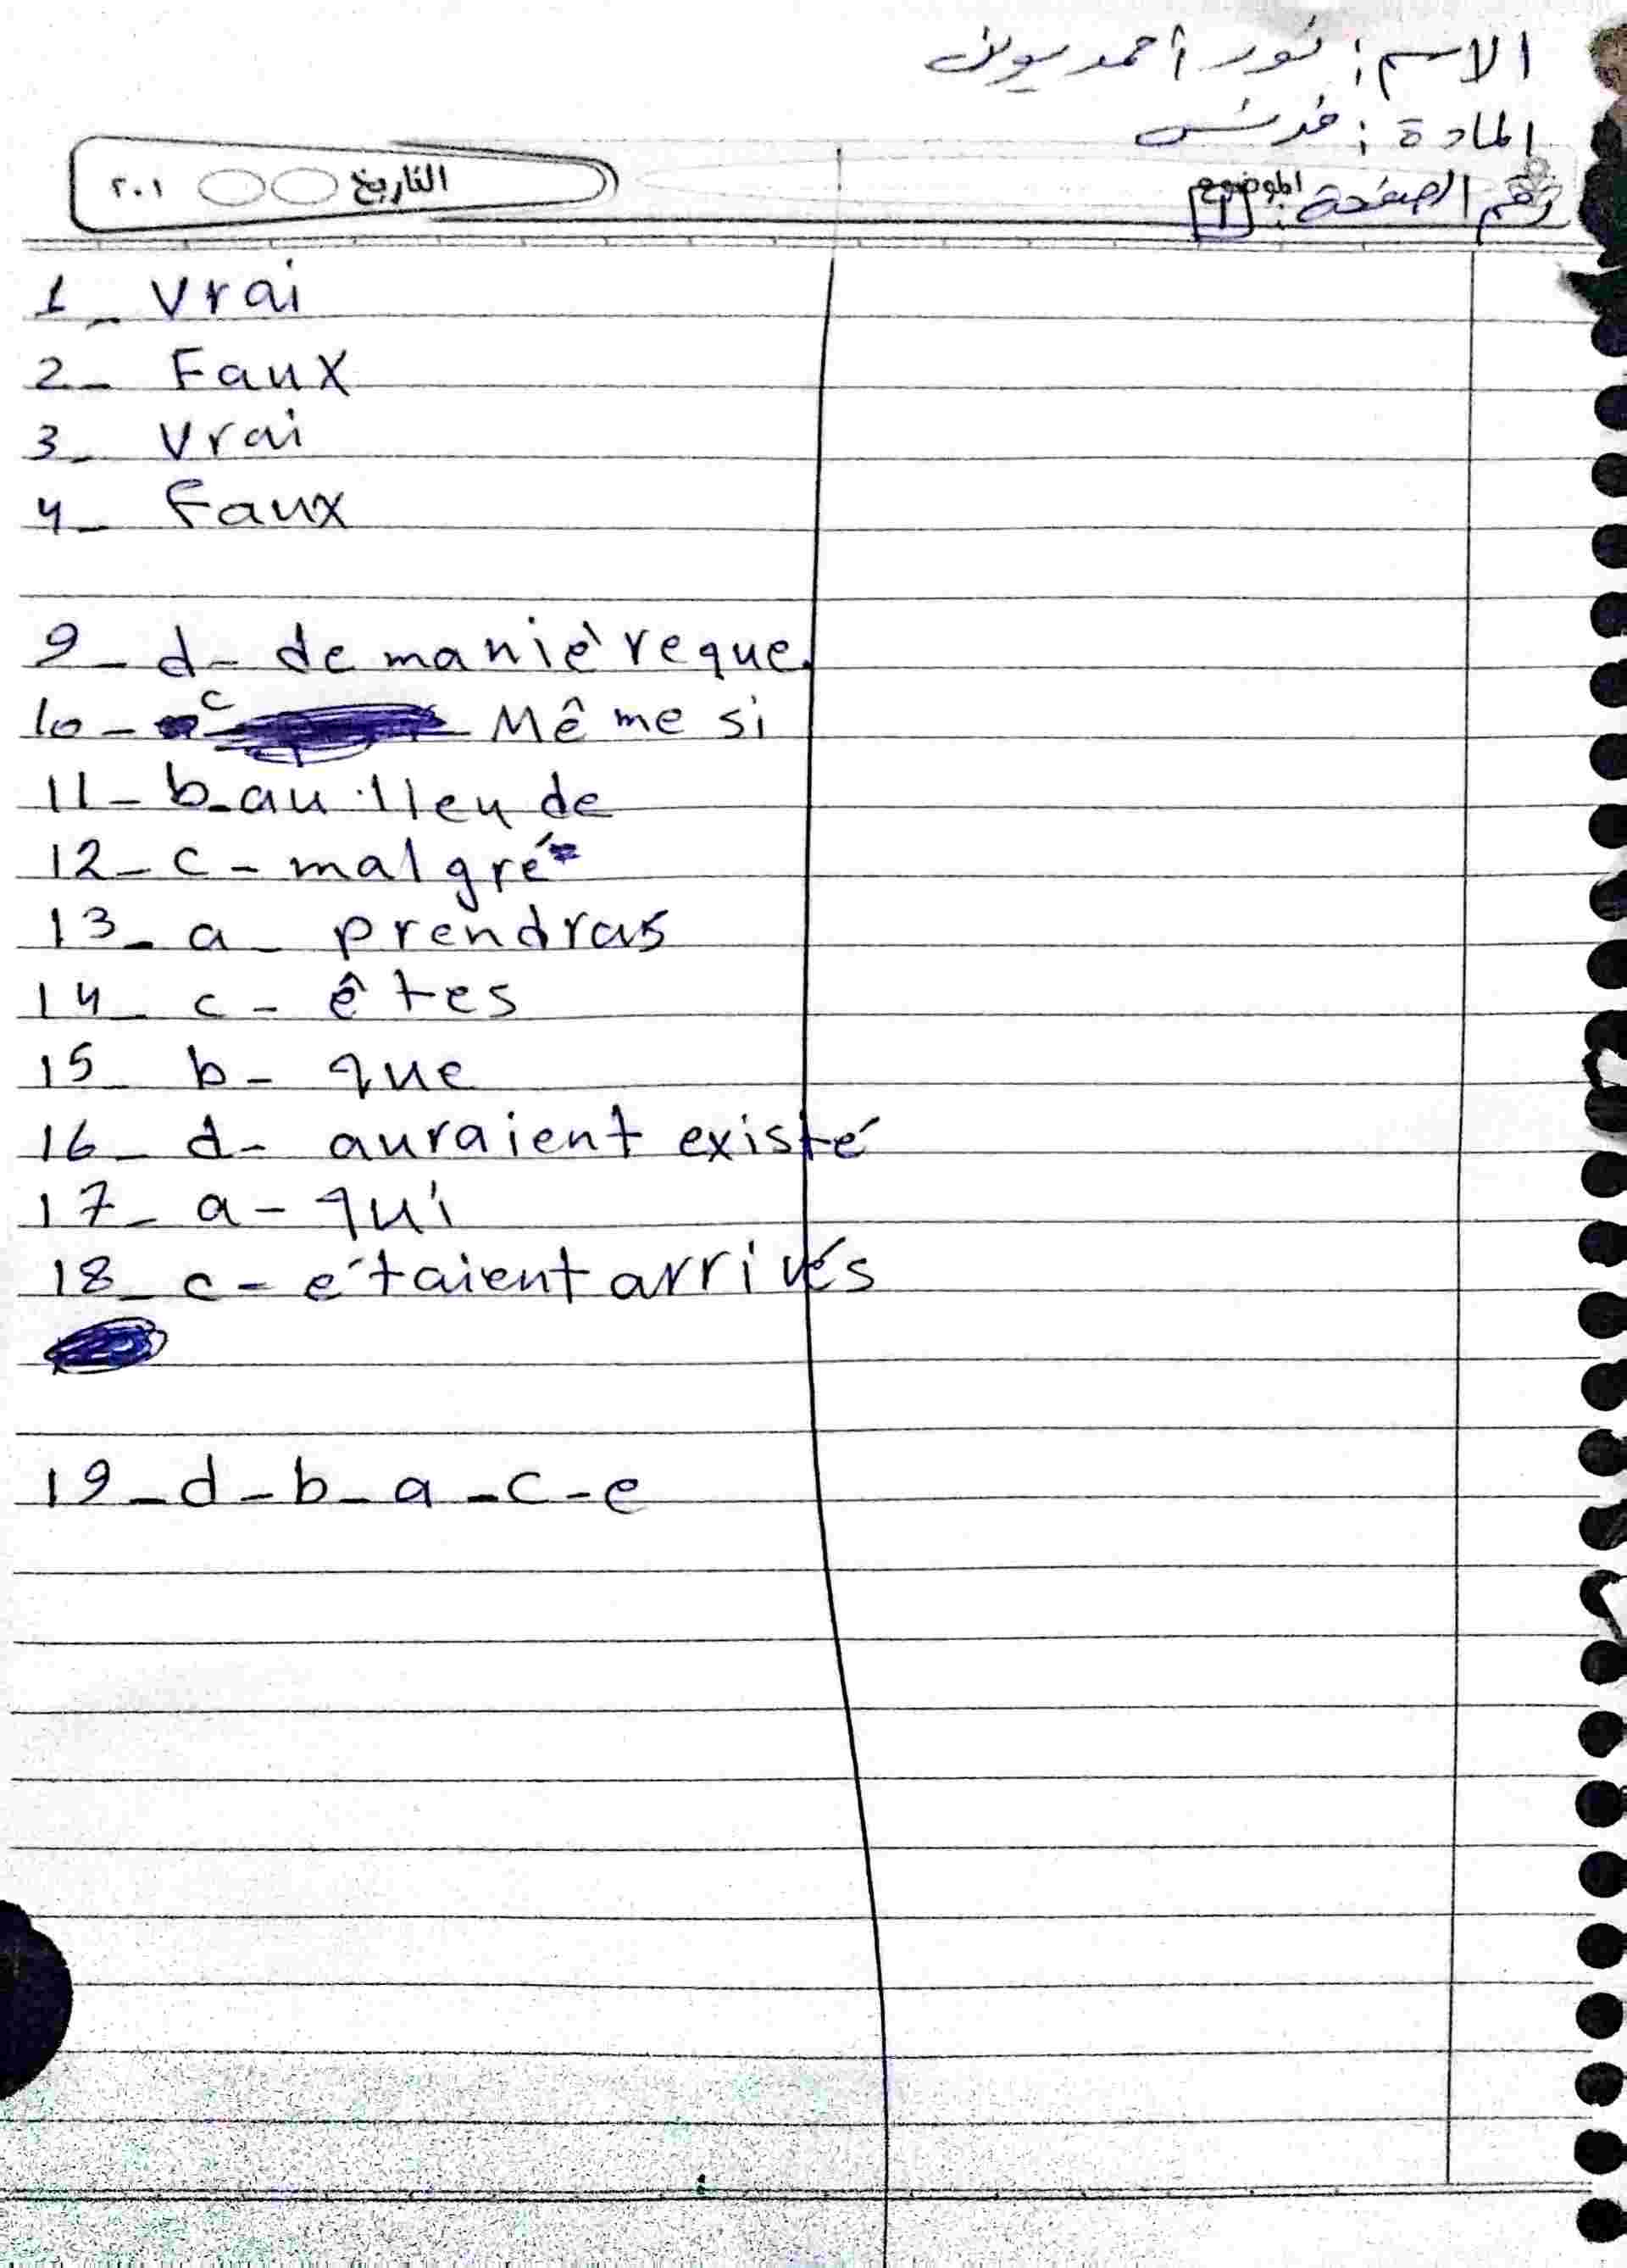 الاسم: نور أحمد
المادة: فرنسي
رقم الصفحة: [1]
الموضوع
التاريخ ٢٠١
1_ Vrai
2_ Faux
3_ Vrai
4_ Faux
9_ d_ de manièreque.
10_ c Même si
11_ b_au lleu de
12_ c_ malgré
13_ a_ prendras
14_ c_ êtes
15_ b_ que
16_ d_ auraient existé
17_ a_ qui
18_ c_ étaient arrivés
19_d_b_a_c_e